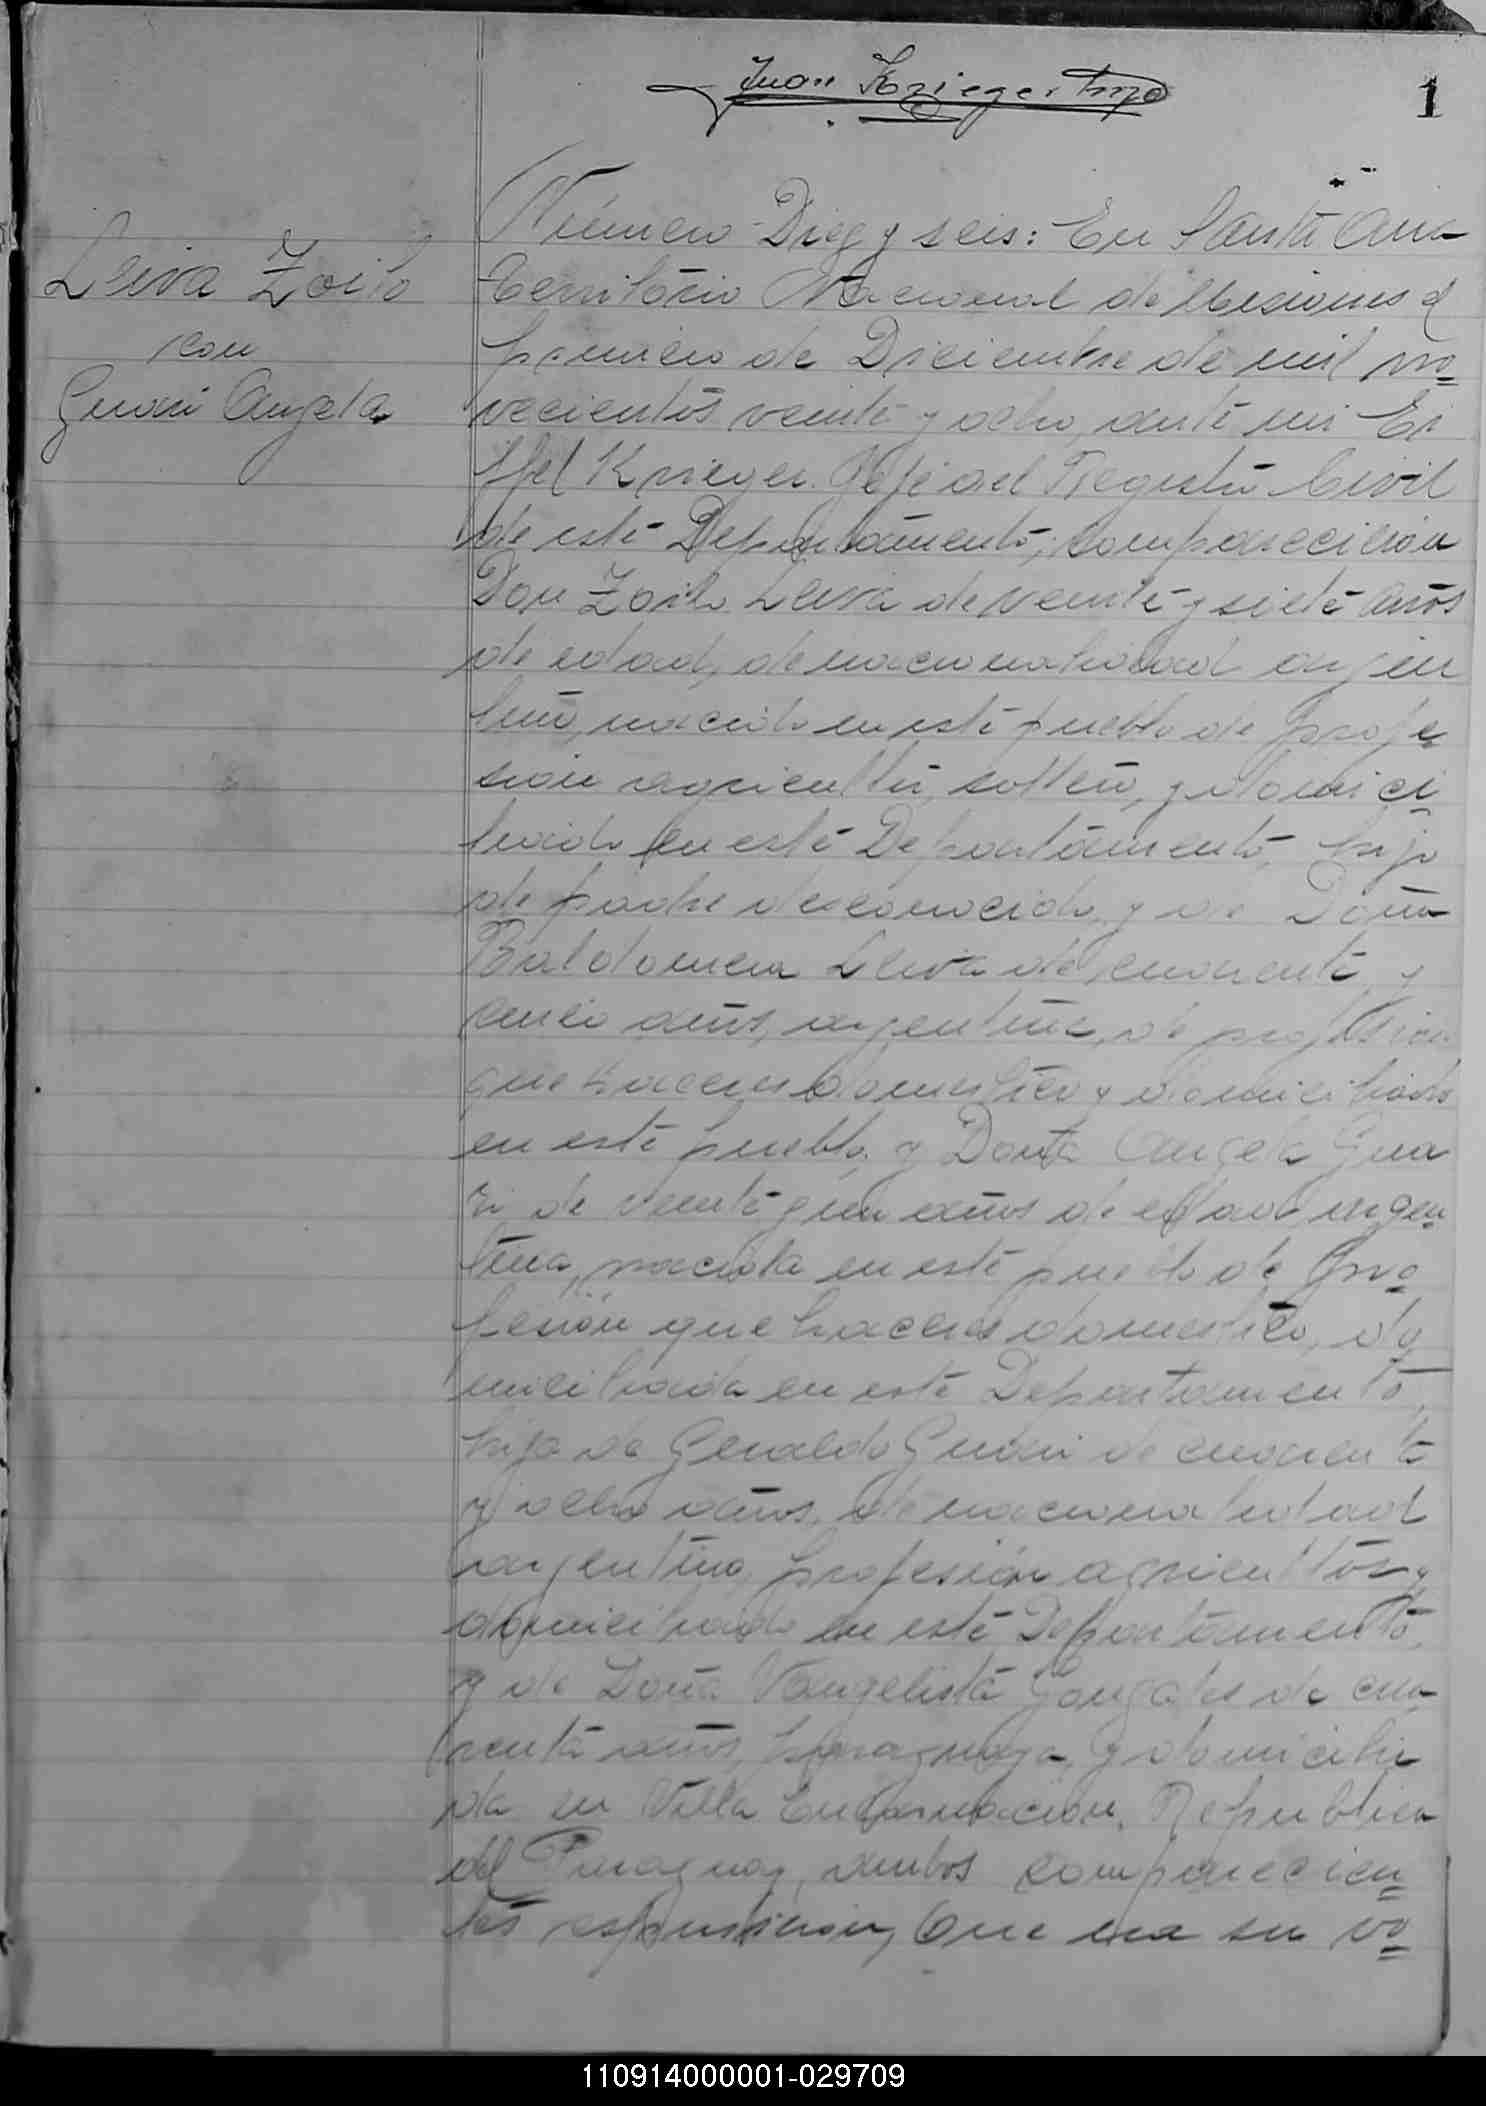 Juan Krieger hijo
1
Leiva Zoilo
con
Guari Angela
Número Diez y seis: En Santa Ana
Territorio Nacional de Misiones el
primero de Diciembre de mil no
vecientos veinte y ocho, ante mi Ei
ffel Krieger Jefe del Registro Civil
de este Departamento, comparecieron
Don Zoilo Leiva de veinte y siete años
de edad, de nacionalidad argen
tino, nacido en este pueblo de profe
sion agricultor, soltero, y domici
liado en este Departamento, hijo
de padre desconocido, y de Doña
Baldomera Leiva de cuarenta y
cinco años, argentina, de profesion
quehaceres domestico y domiciliado
en este pueblo, y Doña Angela Gua
ri de veinte y un años de edad argen
tina, nacida en este pueblo de pro
fesión quehaceres domestico, do
miciliada en este Departamento,
hija de Geraldo Guari de cuarenta
y ocho años, de nacionalidad
argentino, profesión agricultor y
domiciliado en este Departamento,
y de Doña Vangelista Gonzales de cua
renta años, paraguaya, y domicilia
da en Villa Encarnacion, Republica
del Paraguay, ambos comparecien
tes espusieron, Que era su vo